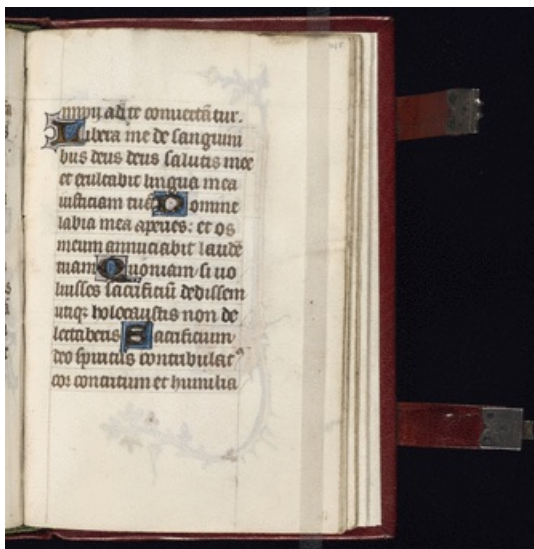 impij ad te conuertātur.
Libera me de sanguini
bus deus deus salutis mee
et exultabit lingua mea
iusticiam tuā Domine
labia mea aperies: et os
meum annuciabit laudē
tuam Quoniam si uo
luisses sacrificiū dedissem
utiqꝫ holocaustis non de
lectaberis Sacrificium
deo spiritus contribulatꝰ
cor contritum et humilia